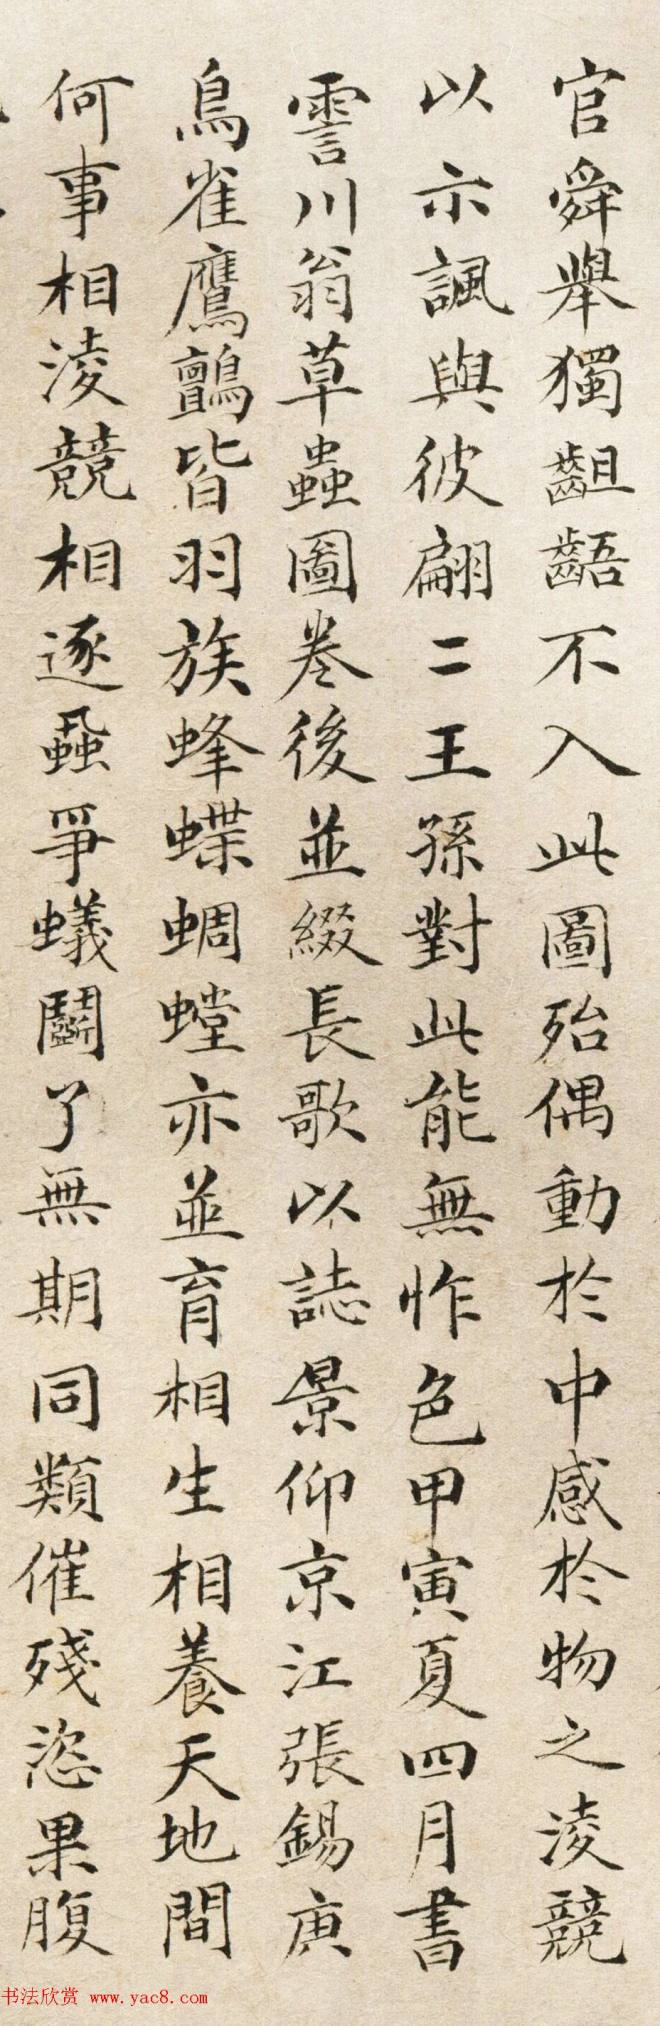 官舜舉獨齟齬不入此圖殆偶動於中感於物之淩競
以示諷與彼翩二王孫對此能無怍色甲寅夏四月書
霅川翁草蟲圖卷後並綴長歌以誌景仰京江張錫庚
鳥雀鷹鸇皆羽族蜂蝶蜩螳亦並育相生相養天地間
何事相淩競相逐蝨爭蟻鬭了無期同類催殘恣果腹
书法欣赏 www.yac8.com